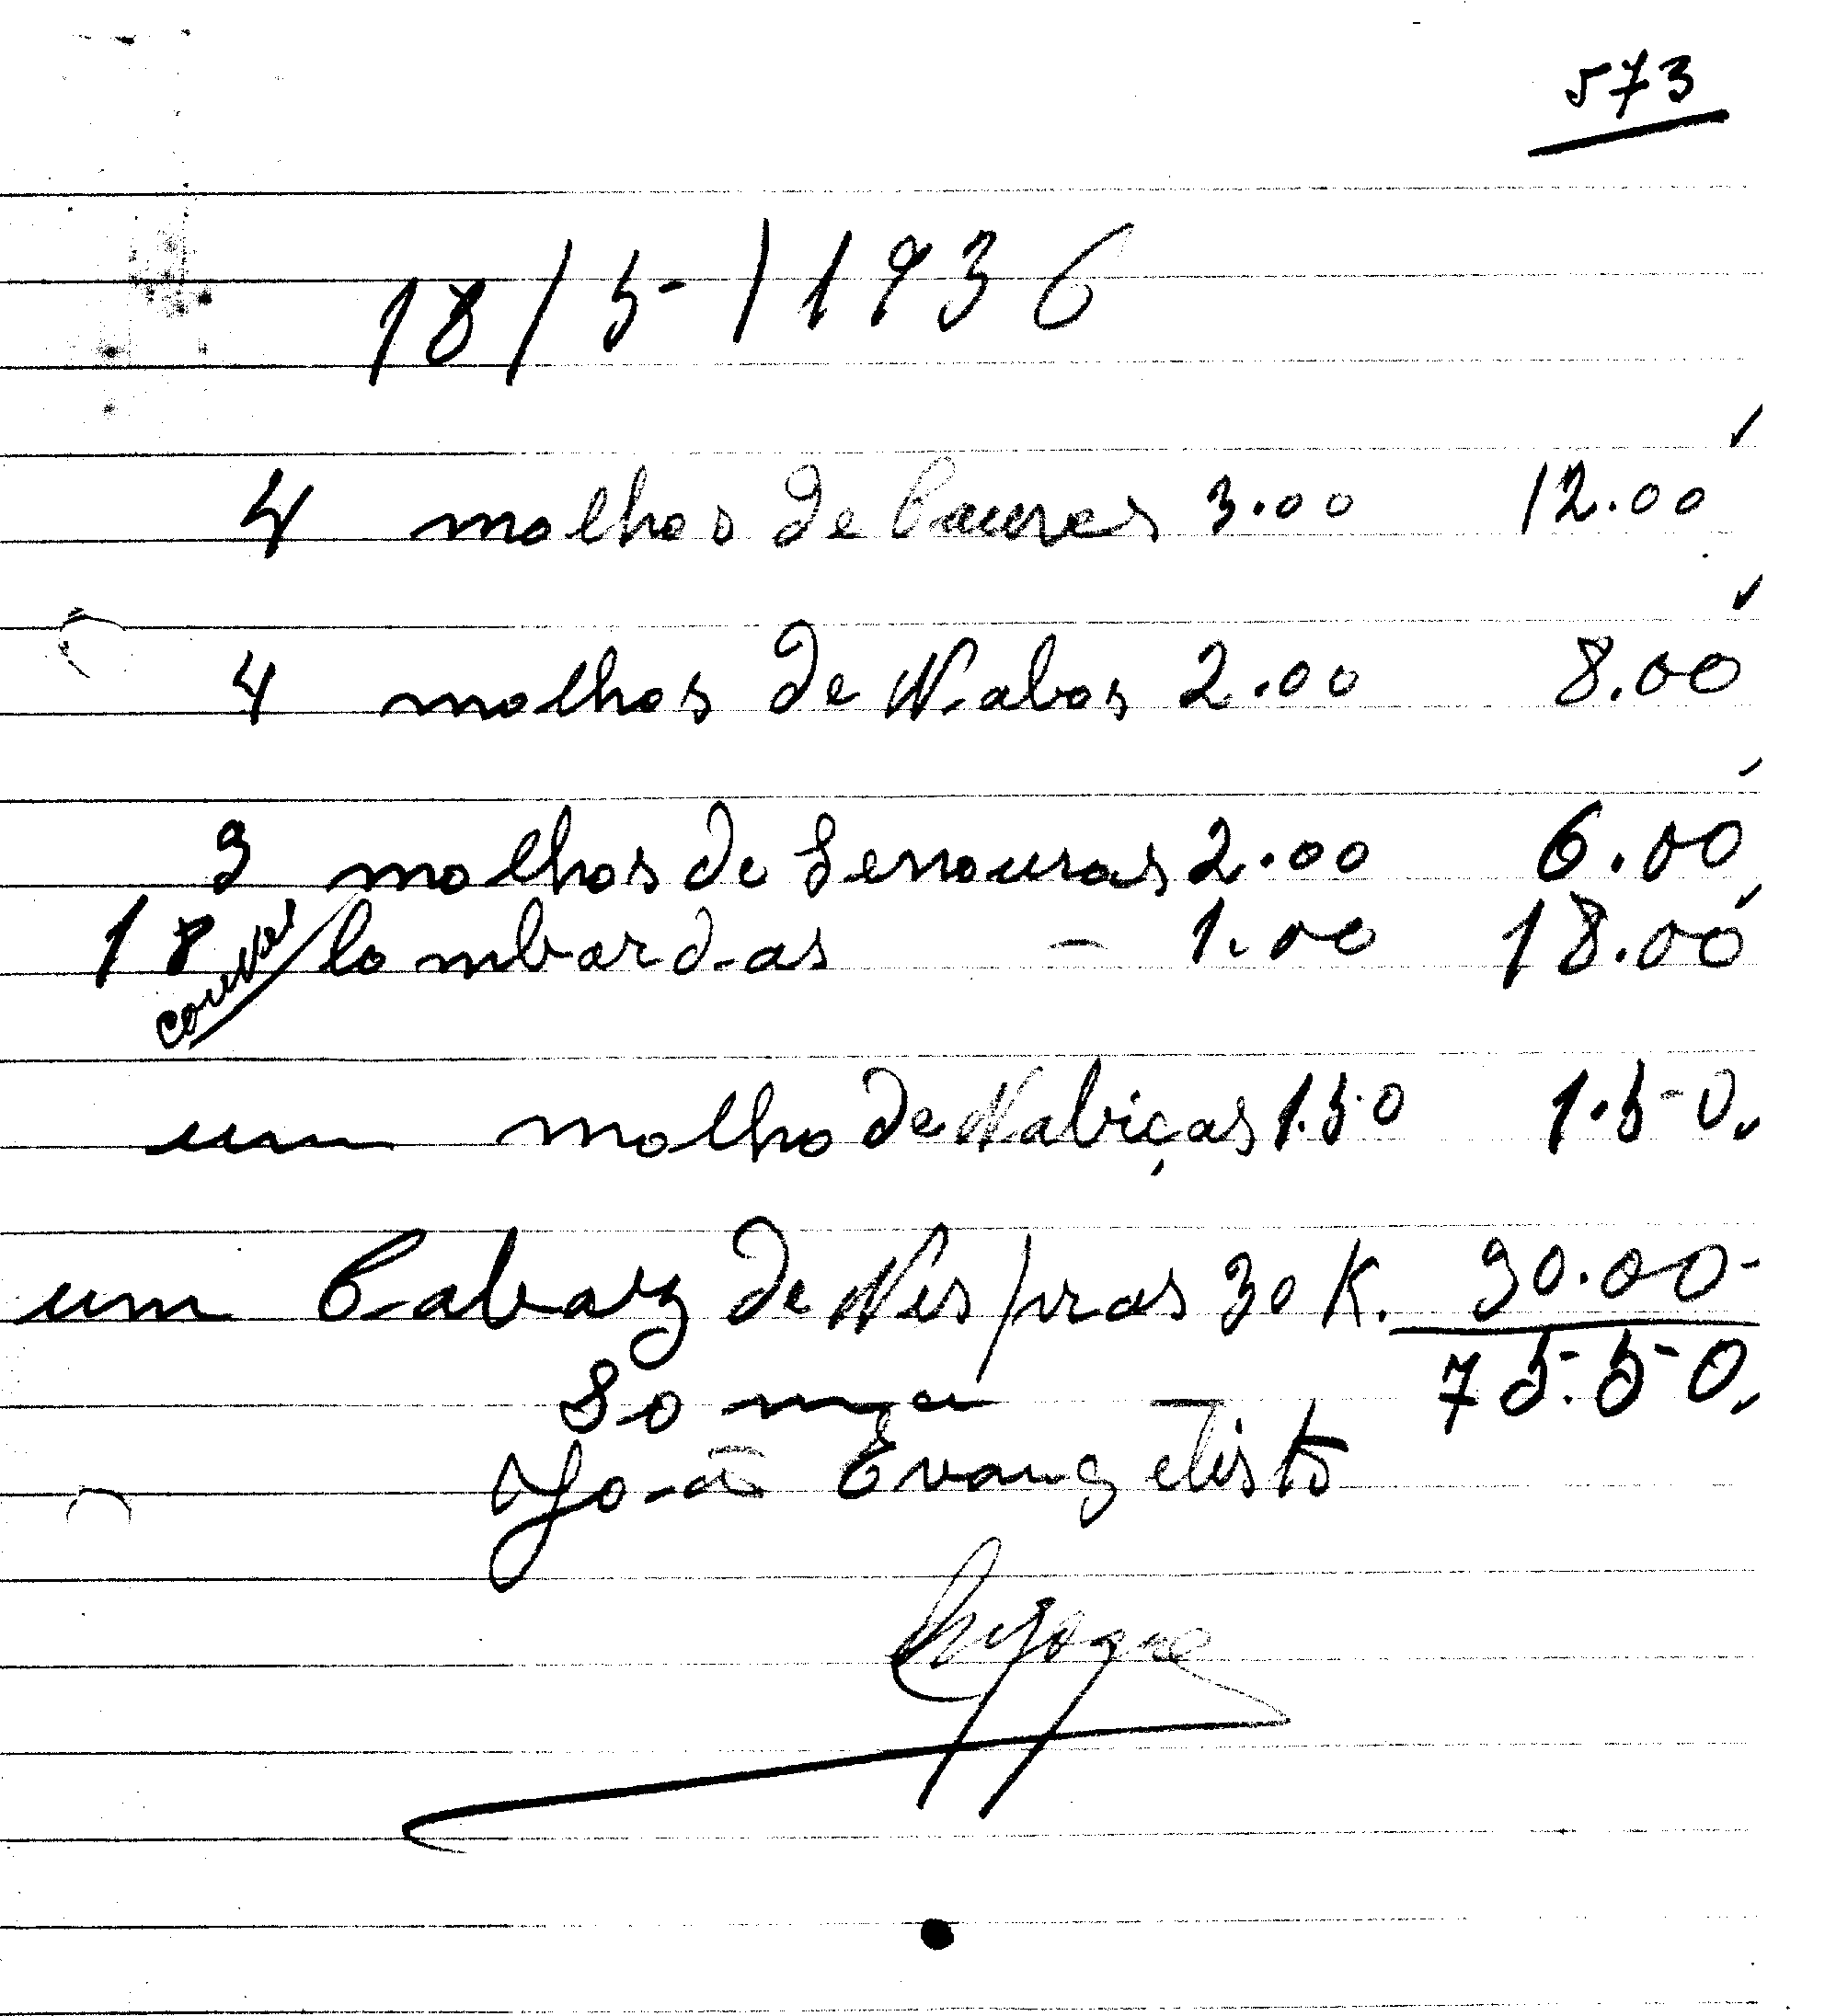 573
18/5/1936
4 molhos de Couves 3.00 12.00
4 molhos de Nabos 2.00 8.00
3 molhos de Senouras 2.00 6.00
18 couves lombardas - 1.00 18.00
um molho de Nabiças 1.50 1.50
um Cabaz de Nespras 30 K. 30.00
Soma 75.50
João Evangelisto